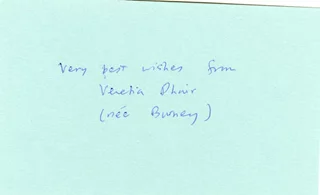 Very best wishes from
Venetia Phair
(née Burney)